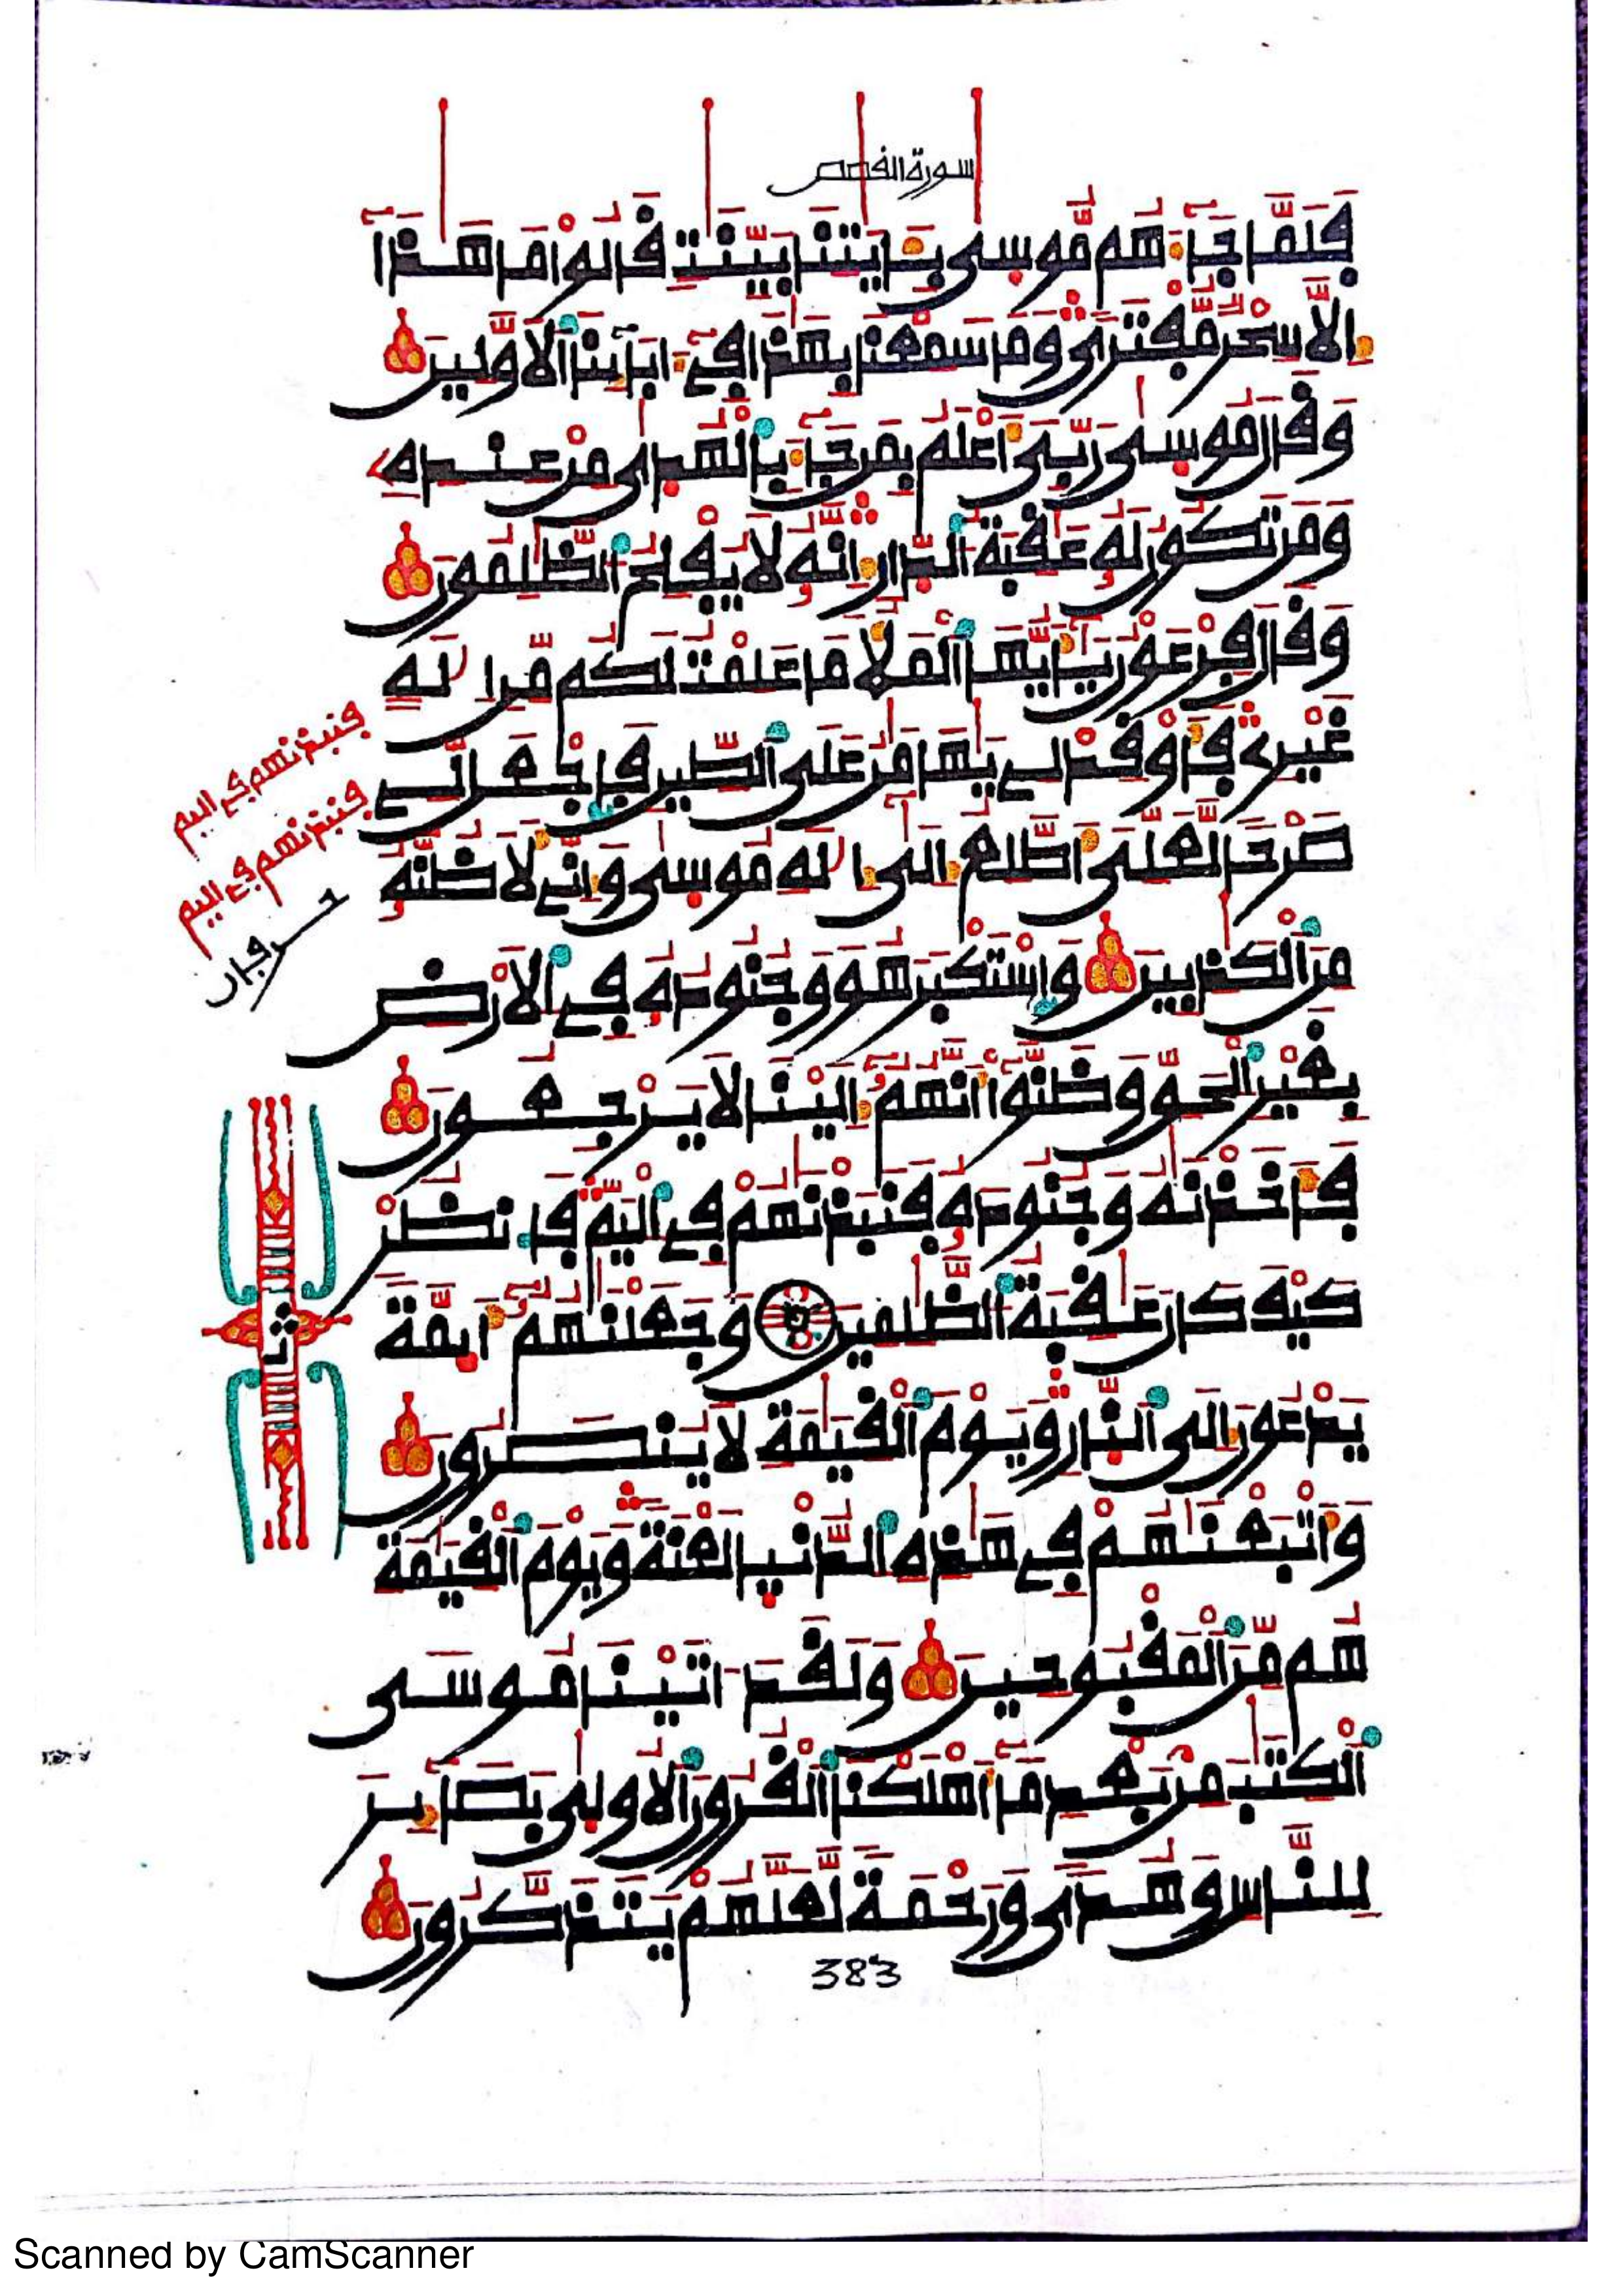 سورة الفصص
فَلَمَّا جَآءَهُم مُّوسٜى بِـَٔايَٰتِنَا بَيِّنَٰتٖ قَالُوا۟ مَا هَٰذَآ
إِلَّا سِحْرٞ مُّفْتَرٗى وَمَا سَمِعْنَا بِهَٰذَا فِےٓ ءَابَآئِنَا اَ۬لَاوَّلِينَ
وَقَالَ مُوسٜى رَبِّيَ أَعْلَمُ بِمَن جَآءَ بِالْهُدٜىٰ مِنْ عِندِهِۦ
وَمَن تَكُونُ لَهُۥ عَٰقِبَةُ اُ۬لدّ۪ارِ إِنَّهُۥ لَا يُفْلِحُ اُ۬لظَّٰلِمُونَ
وَقَالَ فِرْعَوْنُ يَٰٓأَيُّهَا اَ۬لْمَلَأُ مَا عَلِمْتُ لَكُم مِّنِ اِلَٰهٍ
غَيْرِے فَأَوْقِدْ لِے يَٰهَٰمَٰنُ عَلَى اَ۬لطِّينِ فَاجْعَل لِّے
صَرْحاٗ لَّعَلِّيَ أَطَّلِعُ إِلَىٰٓ إِلَٰهِ مُوسٜىٰ وَإِنِّے لَأَظُنُّهُۥ
مِنَ اَ۬لْكَٰذِبِينَ وَاسْتَكْبَرَ هُوَ وَجُنُودُهُۥ فِے اِ۬لَارْضِ
بِغَيْرِ اِ۬لْحَقِّ وَظَنُّوٓا۟ أَنَّهُمُۥٓ إِلَيْنَا لَا يَرْجِعُونَ
فَأَخَذْنَٰهُ وَجُنُودَهُۥ فَنَبَذْنَٰهُمْ فِے اِ۬لْيَمِّ فَانظُرْ
كَيْفَ كَانَ عَٰقِبَةُ اُ۬لظَّٰلِمِينَ وَجَعَلْنَٰهُمُۥٓ أَئِمَّةٗ
يَدْعُونَ إِلَى اَ۬لنّ۪ارِ وَيَوْمَ اَ۬لْقِيَٰمَةِ لَا يُنصَرُونَ
وَأَتْبَعْنَٰهُمْ فِے هَٰذِهِ اِ۬لدُّنْيٜا لَعْنَةٗ وَيَوْمَ اَ۬لْقِيَٰمَةِ
هُم مِّنَ اَ۬لْمَقْبُوحِينَ وَلَقَدَ اٰتَيْنَا مُوسَى
اَ۬لْكِتَٰبَ مِنۢ بَعْدِ مَآ أَهْلَكْنَا اَ۬لْقُرُونَ اَ۬لُاولٜىٰ بَصَآئِرَ
لِلنَّاسِ وَهُدٗى وَرَحْمَةٗ لَّعَلَّهُمْ يَتَذَكَّرُونَ
فنبذنهم في اليم
فنبذنهم في اليم
ثمن
383
Scanned by CamScanner